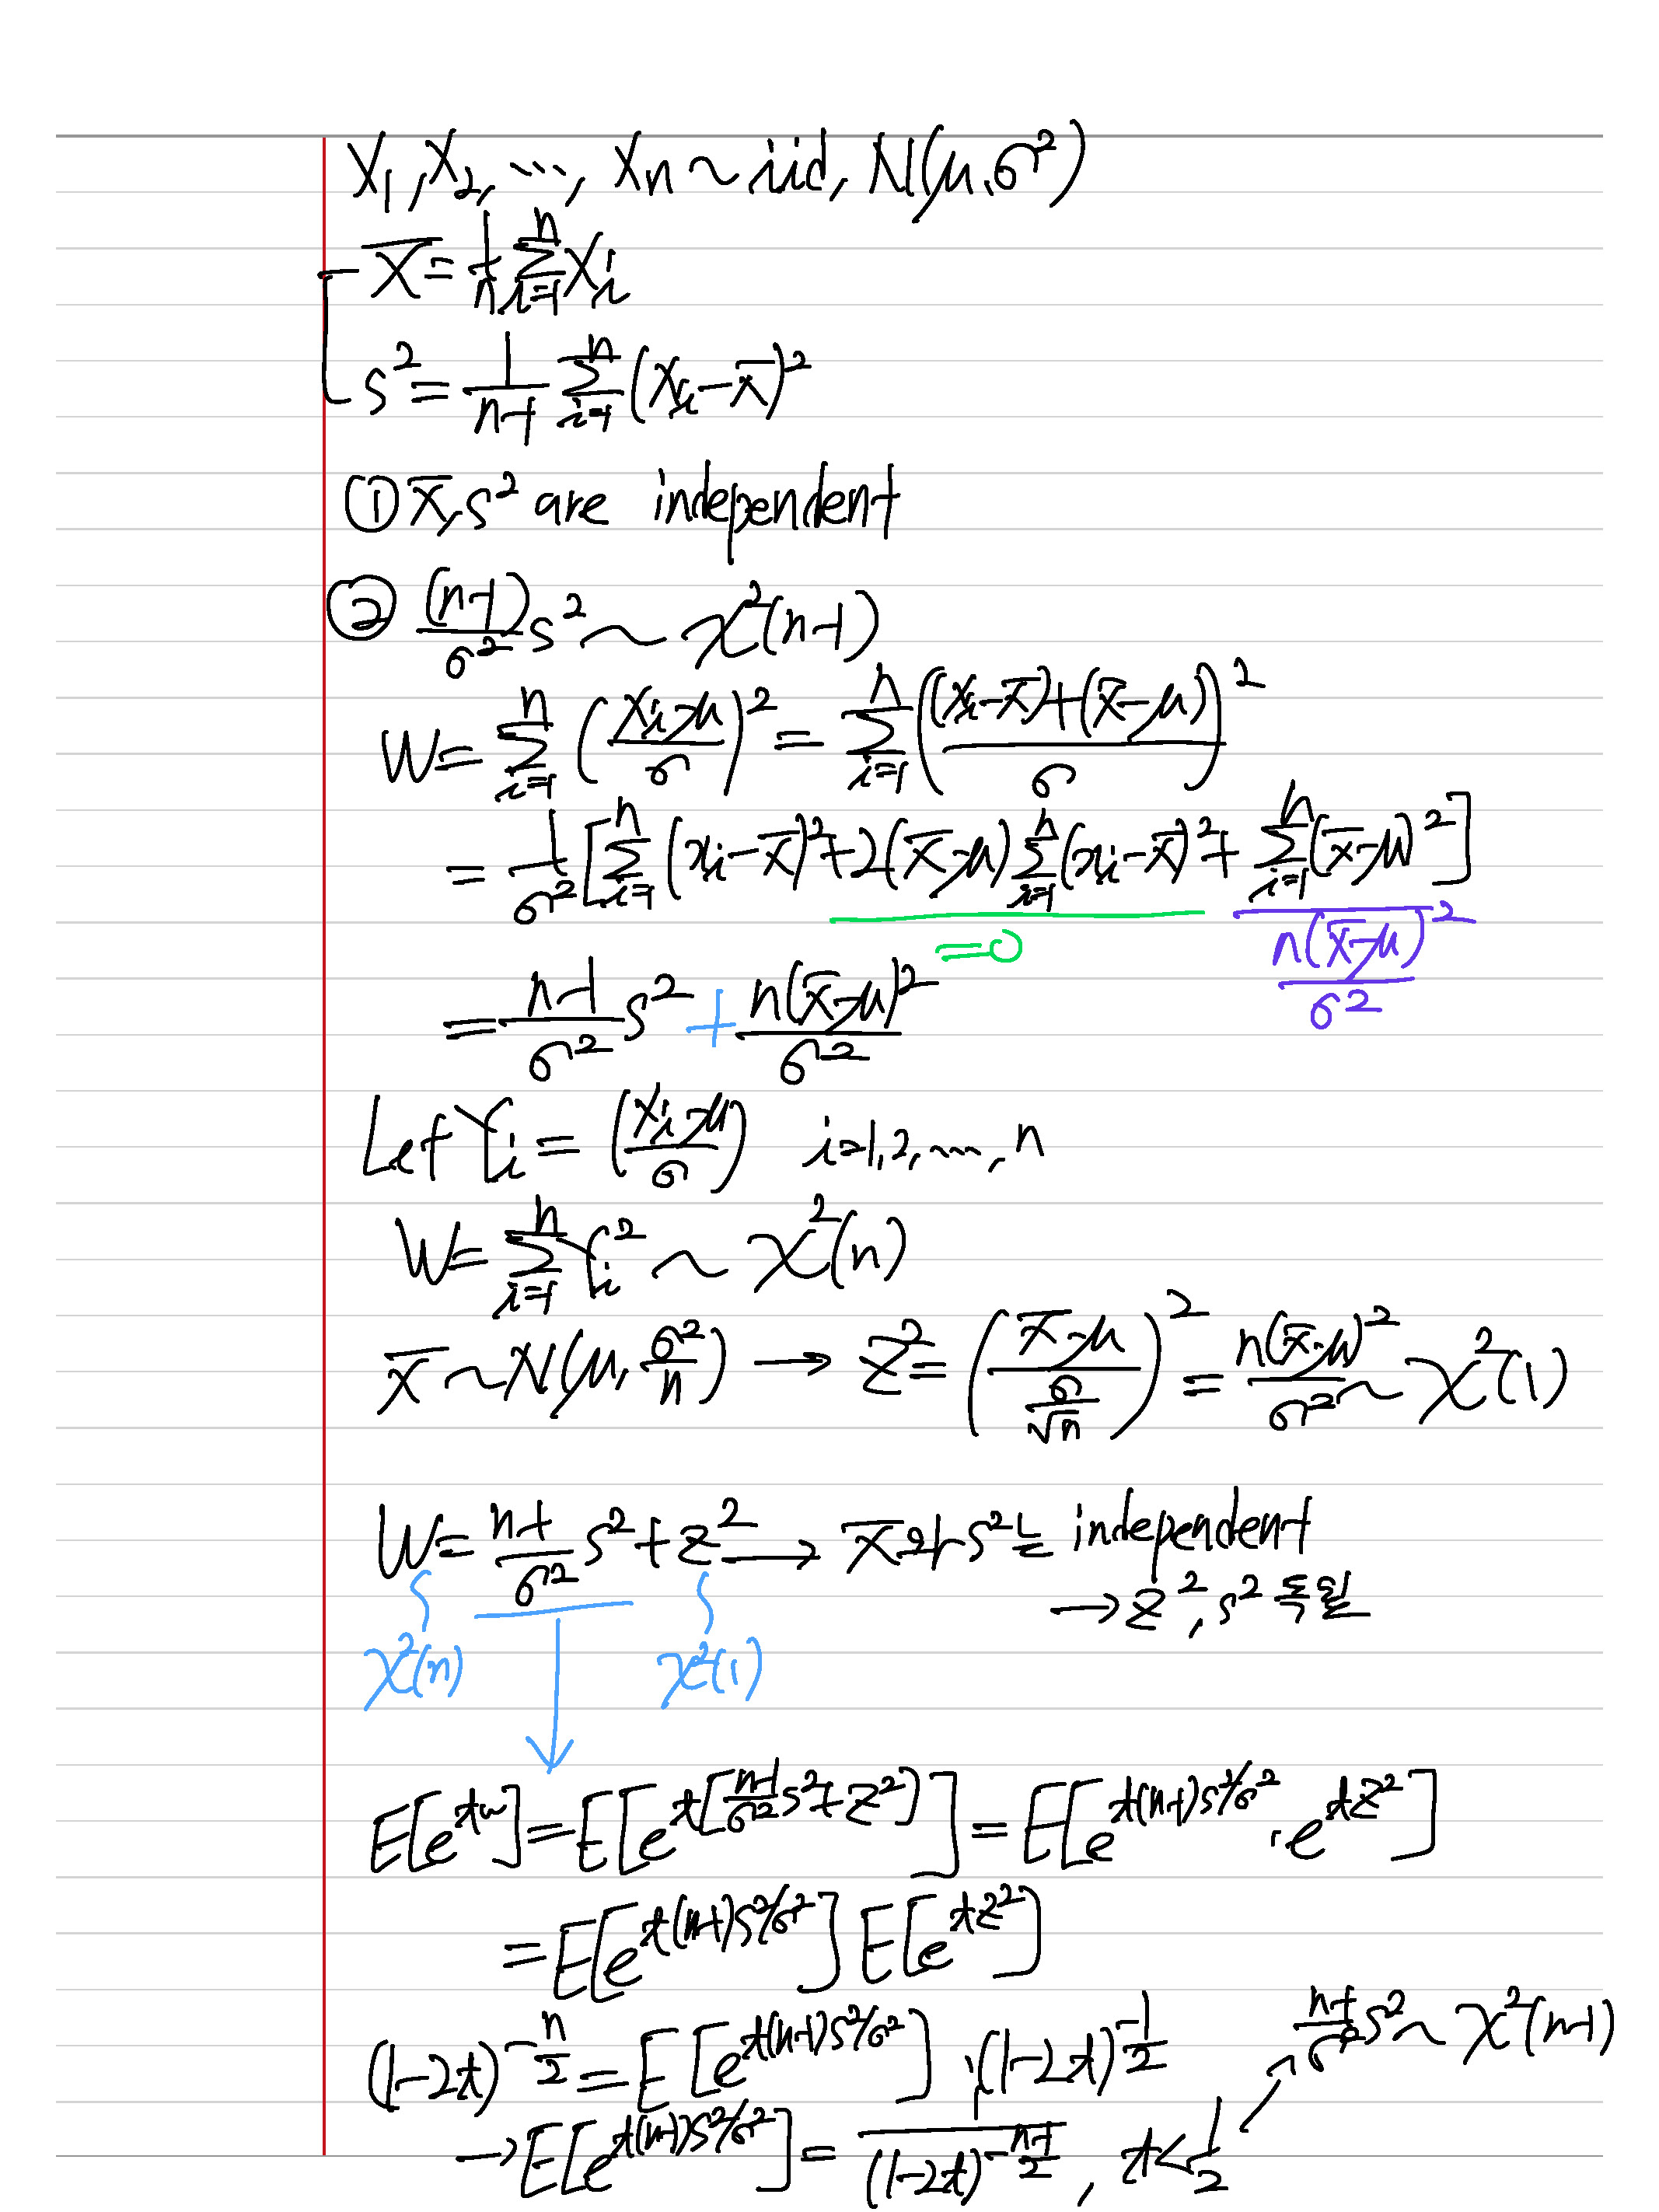 X₁, X₂, ⋯, Xn ~ iid, N(μ, σ²)
X̄ = 1/n Σ_{i=1}^{n} Xi
s² = 1/(n-1) Σ_{i=1}^{n} (Xi - X̄)²
① X̄, s² are independent
② (n-1)/σ² s² ~ χ²(n-1)
W = Σ_{i=1}^{n} ((Xi-μ)/σ)² = Σ_{i=1}^{n} (((Xi-X̄)+(X̄-μ))/σ)²
= 1/σ² [Σ_{i=1}^{n} (xi-X̄)² + 2(X̄-μ) Σ_{i=1}^{n} (xi-X̄)² + Σ_{i=1}^{n} (X̄-μ)²]
=0 n(X̄-μ)²/σ²
= (n-1)/σ² s² + n(X̄-μ)²/σ²
Let Yi = ((Xi-μ)/σ) i=1,2,⋯,n
W = Σ_{i=1}^{n} Yi² ~ χ²(n)
X̄ ~ N(μ, σ²/n) → Z² = ((X̄-μ)/(σ/√n))² = n(X̄-μ)²/σ² ~ χ²(1)
W = (n-1)/σ² s² + Z² → X̄와 s²는 independent
→ Z², s² 독립
χ²(n) χ²(1)
E[e^{tw}] = E[e^{t[(n-1)/σ² s² + Z²)}] = E[e^{t(n-1)s²/σ²} · e^{tZ²}]
= E[e^{t(n-1)s²/σ²}] E[e^{tZ²}]
(1-2t)^{-n/2} = E[e^{t(n-1)s²/σ²}] · (1-2t)^{-1/2} (n-1)/σ² s² ~ χ²(n-1)
→ E[e^{t(n-1)s²/σ²}] = 1/(1-2t)^{-(n-1)/2}, t < 1/2